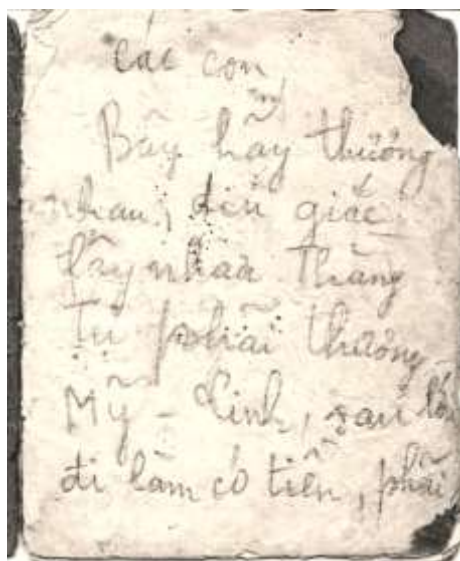 các con
Bây hãy thương
nhau, đến giấc
lấy nhau thằng
Tư phải thương
Mỹ - Linh, sau lớn
đi làm có tiền, phải